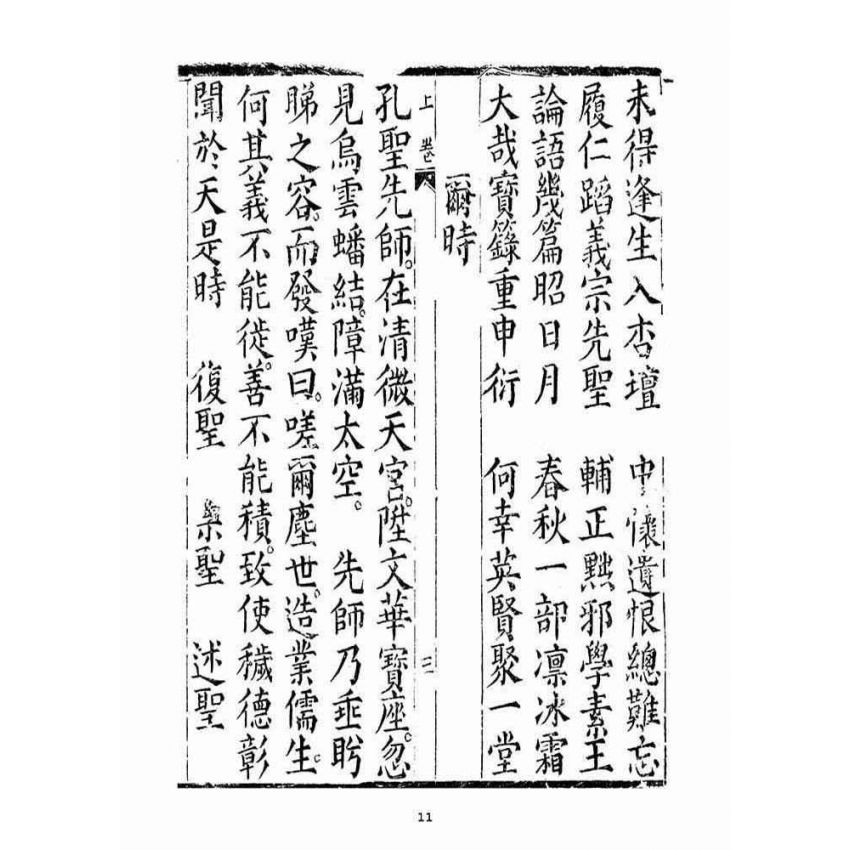 未得逢生入杏壇　中懷遺恨總難忘
履仁蹈義宗先聖　輔正黜邪學素王
論語幾篇昭日月　春秋一部凛冰霜
大哉寶籙重申衍　何幸英賢聚一堂
爾時
上卷　三
孔聖先師。在清微天宮。陞文華寶座。忽
見烏雲蟠結。障滿太空。　先師乃垂盻
睇之容。而發嘆曰。嗟爾塵世。造業儒生。
何其義不能徙。善不能積。致使穢德彰
聞於天是時　復聖　宗聖　述聖
11